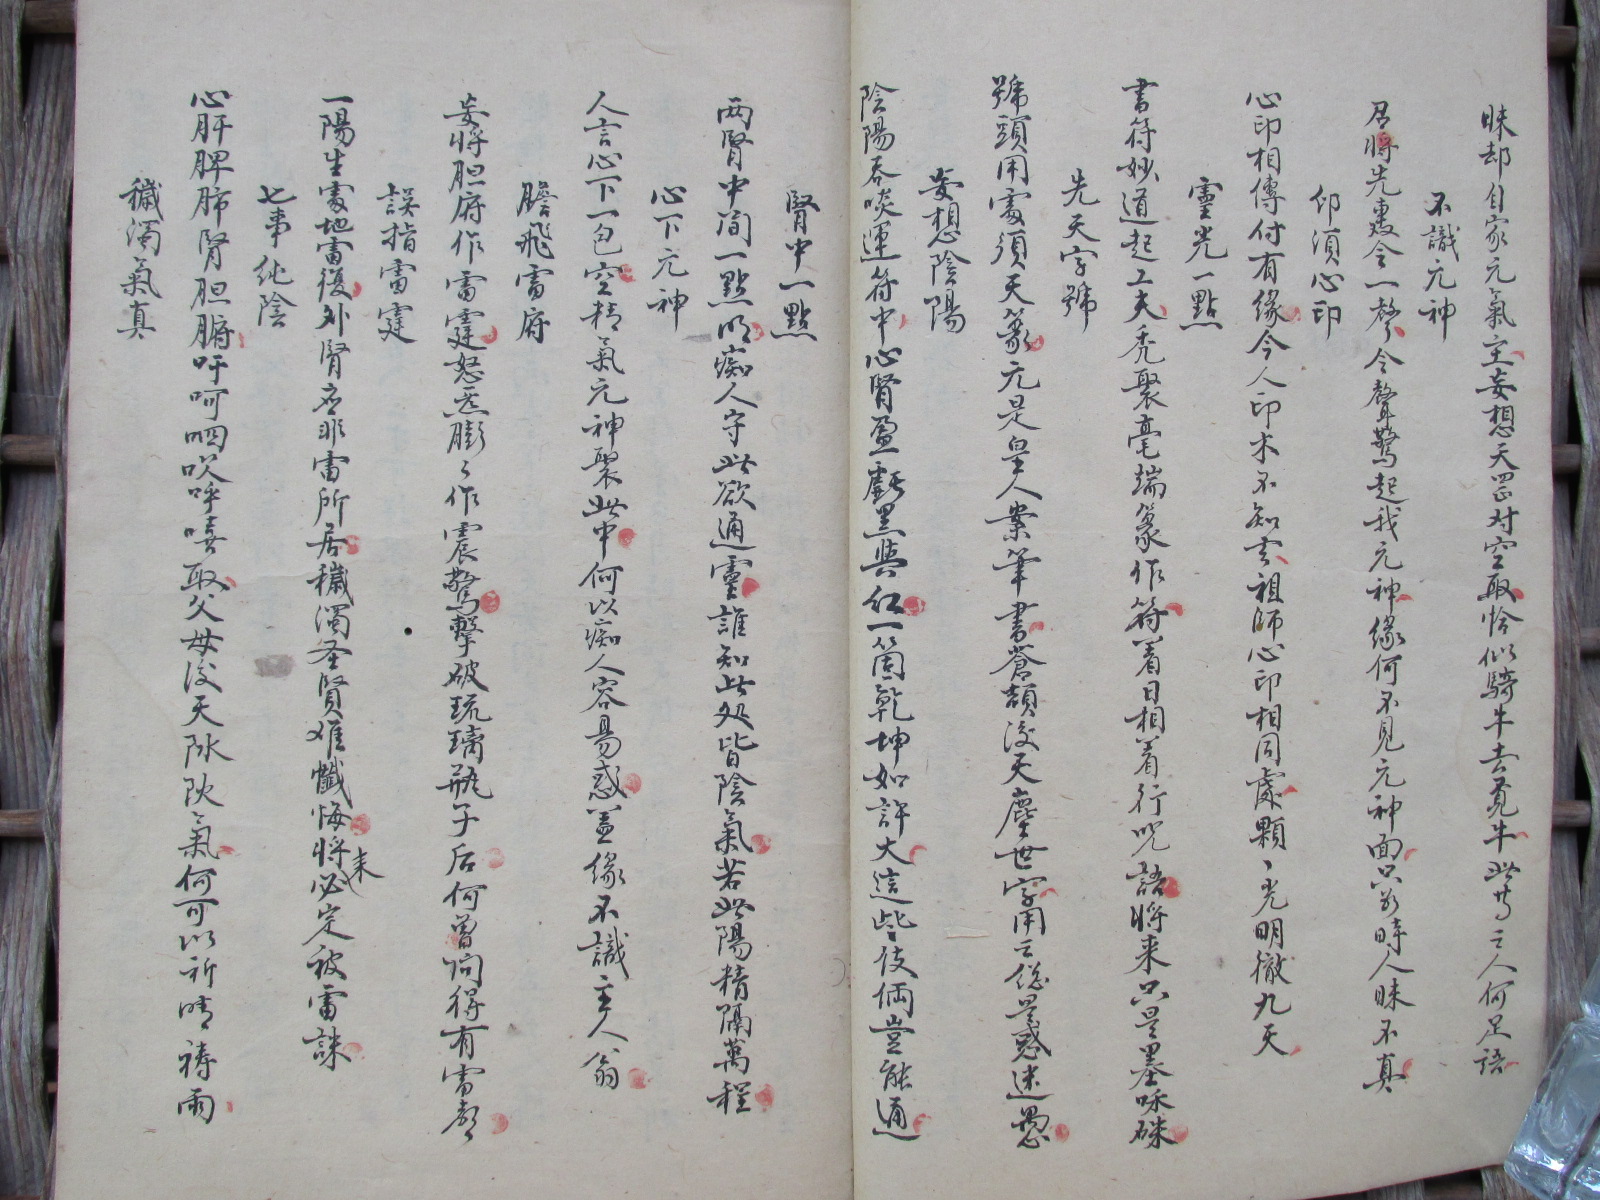 昧却自家元氣主妄想天罡对空取恰似騎牛去覓牛此䓁之人何足語
不識元神
召將先轰令一聲令聲驚起我元神緣何不見元神面只为時人昧不真
印須心印
心印相傳付有緣今人印木不知玄祖師心印相同處顆〻光明徹九天
靈光一點
書符妙道起工夫禿聚毫端篆作符着日相着行咒語將来只是墨呸硃
先天字號
號頭用處須天篆元是皇人案筆書蒼頡后天塵世字用之総是惑迷愚
妄想陰陽
陰陽吞啖運符中心腎盈虧黑與紅一箇乾坤如許大這些伎倆豈能通
腎中一點
两腎中间一點明痴人守此欲通靈誰知此处皆陰氣若此陽精隔萬程
心下元神
人言心下一包空精氣元神聚此中何以痴人容易惑盖緣不識主人翁
膽飛雷府
妄將胆府作雷霆怒悪膨〻作震驚擊破琉璃瓶子后何曾问得有雷声
誤指雷霆
一陽生處地雷復外腎右非雷所居穢濁圣賢难懺悔將来必定被雷誅
七事純陰
心肝脾肺腎胆腑吁呵呬吹呼嘻取父母後天陎阦氣何可以祈晴祷雨
穢濁氣真